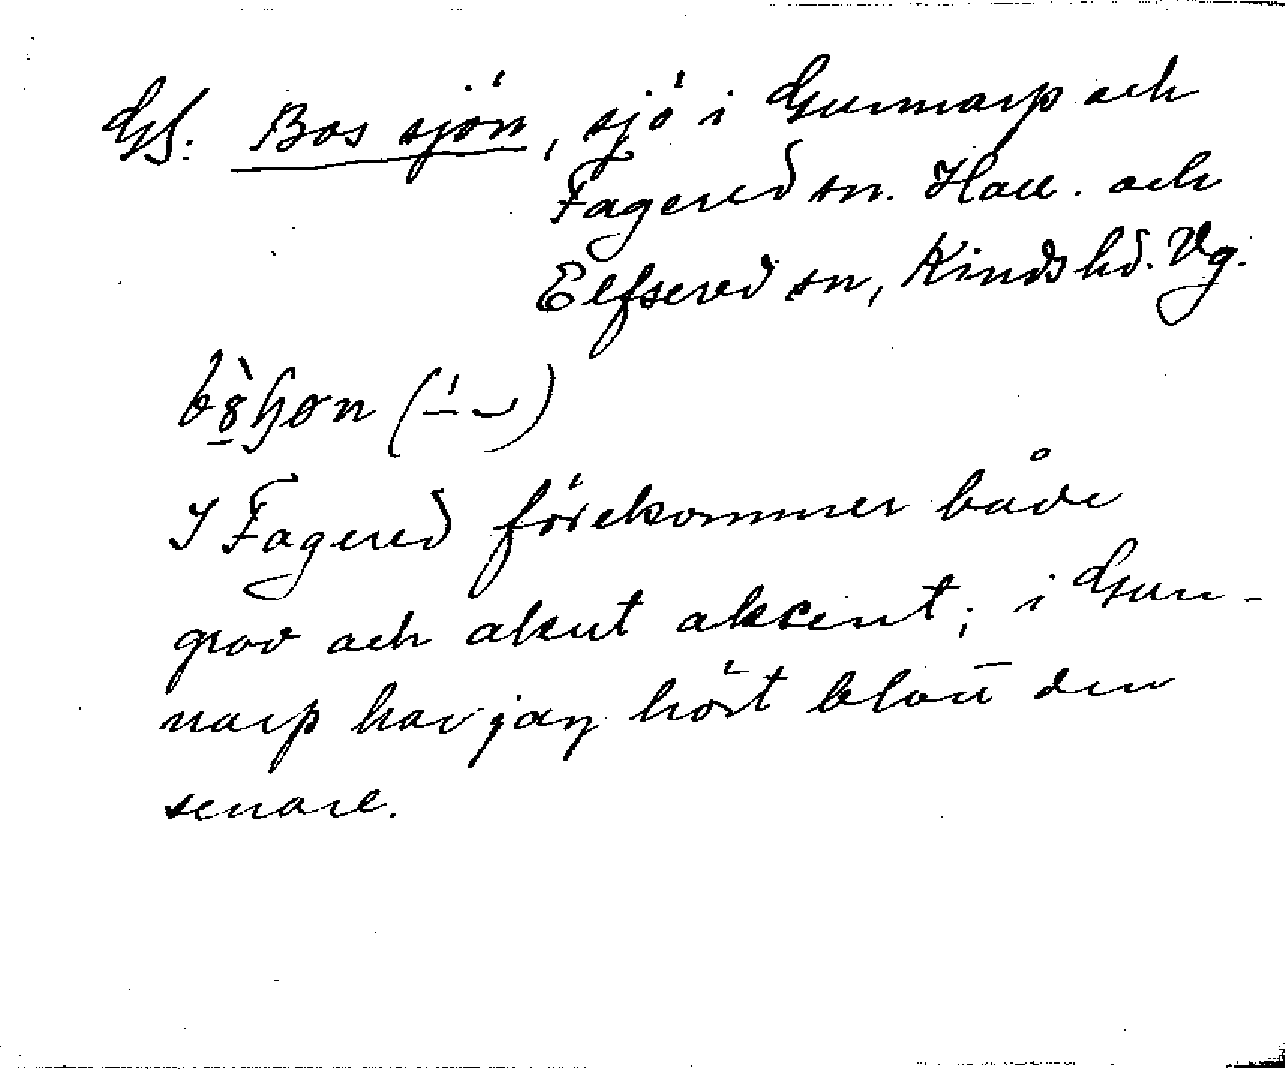 GS: Bossjön, sjö i Gunnarp och
Fagered sn. Hall. och
Elfsered sn, Kinds hd. Vg.
I Fagered förekommer både
grav och akut akcent; i Gun-
narp har jag hört blott den
senare.